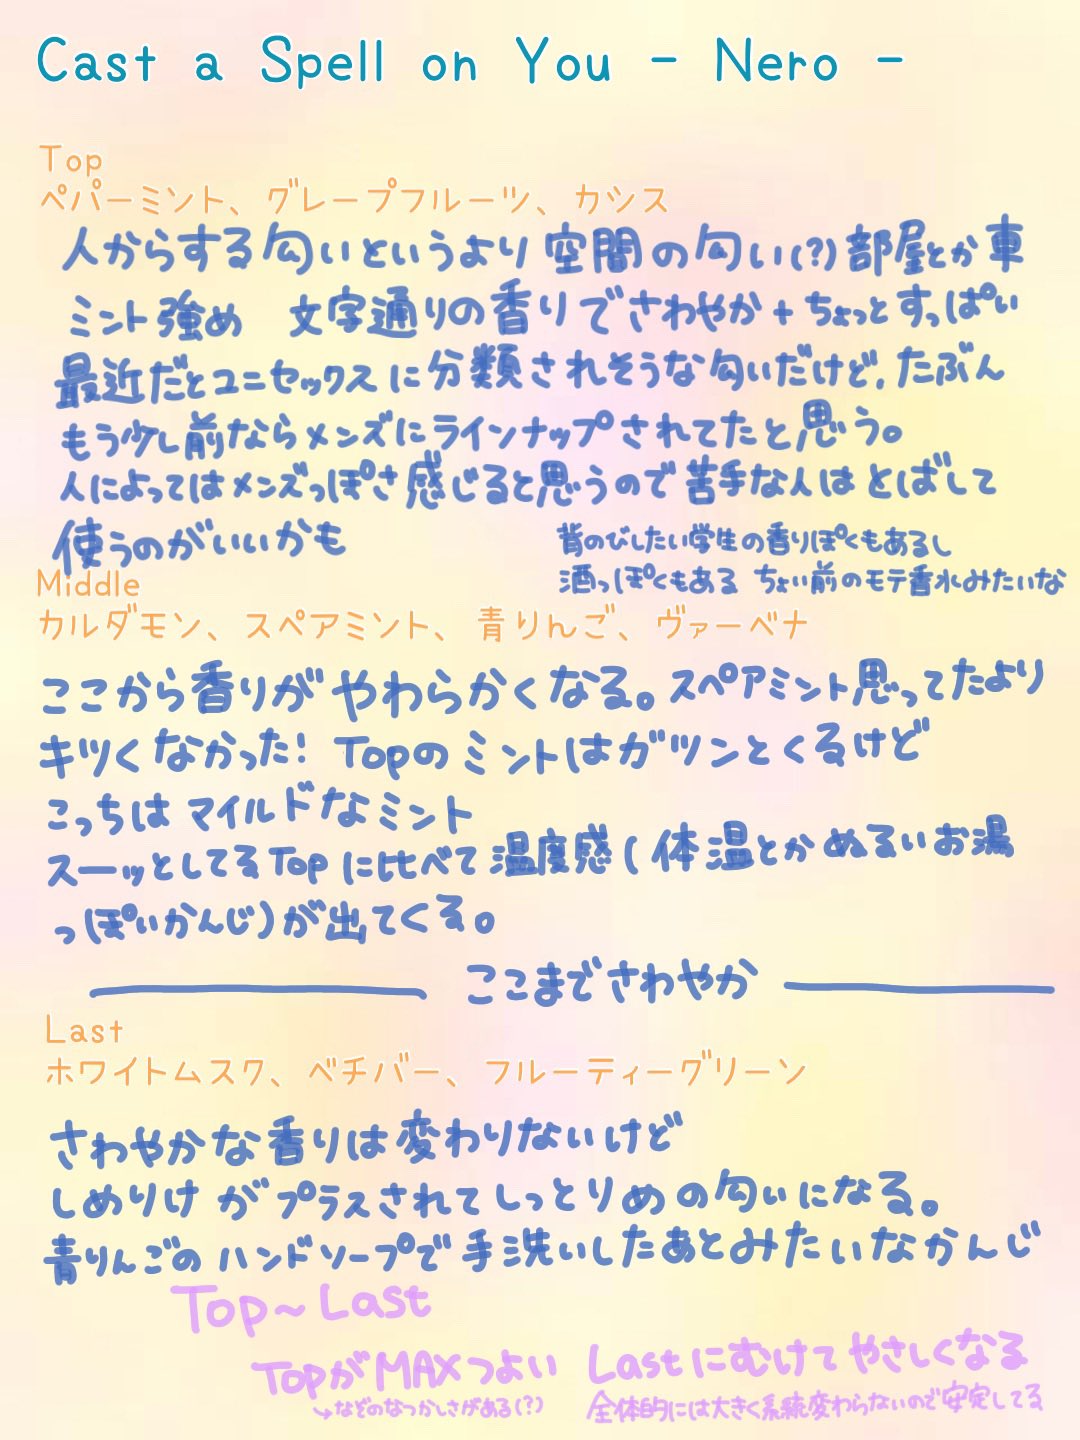 Cast a Spell on You - Nero -
Top
ペパーミント、グレープフルーツ、カシス
人からする匂いというより 空間の匂い(?) 部屋とか車
ミント強め 文字通りの香りでさわやか+ちょっとすっぱい
最近だとユニセックスに分類されそうな匂いだけど、たぶん
もう少し前ならメンズにラインナップされてたと思う。
人によってはメンズっぽさ感じると思うので苦手な人はとばして
使うのがいいかも
背のびしたい学生の香りぽくもあるし
酒っぽくもある ちょい前のモテ香水みたいな
Middle
カルダモン、スペアミント、青りんご、ヴァーベナ
ここから香りがやわらかくなる。スペアミント思ってたより
キツくなかった! Topのミントはガツンとくるけど
こっちはマイルドなミント
スーッとしてるTopに比べて温度感(体温とかぬるいお湯
っぽいかんじ)が出てくる。
ここまでさわやか
Last
ホワイトムスク、ベチバー、フルーティーグリーン
さわやかな香りは変わりないけど
しめりけがプラスされてしっとりめの匂いになる。
青りんごのハンドソープで手洗いしたあとみたいなかんじ
Top~Last
TopがMAXつよい Lastにむけてやさしくなる
→などのなつかしさがある(?) 全体的には大きく系統変わらないので安定してる